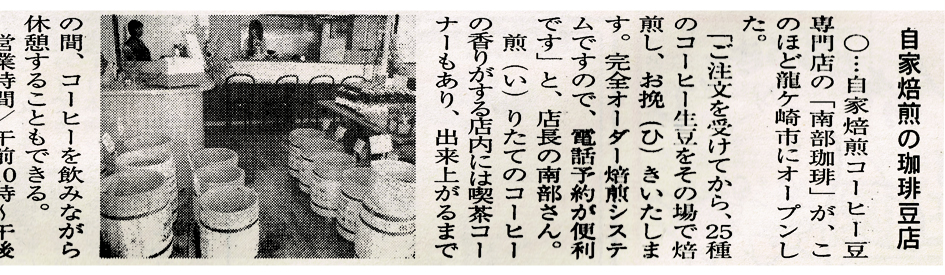 自家焙煎の珈琲豆店
〇…自家焙煎コーヒー豆
専門店の「南部珈琲」が、こ
のほど龍ケ崎市にオープンし
た。
「ご注文を受けてから、25種
のコーヒー生豆をその場で焙
煎し、お挽（ひ）きいたしま
す。完全オーダー焙煎システ
ムですので、電話予約が便利
です」と、店長の南部さん。
煎（い）りたてのコーヒー
の香りがする店内には喫茶コー
ナーもあり、出来上がるまで
の間、コーヒーを飲みながら
休憩することもできる。
営業時間／午前10時〜午後